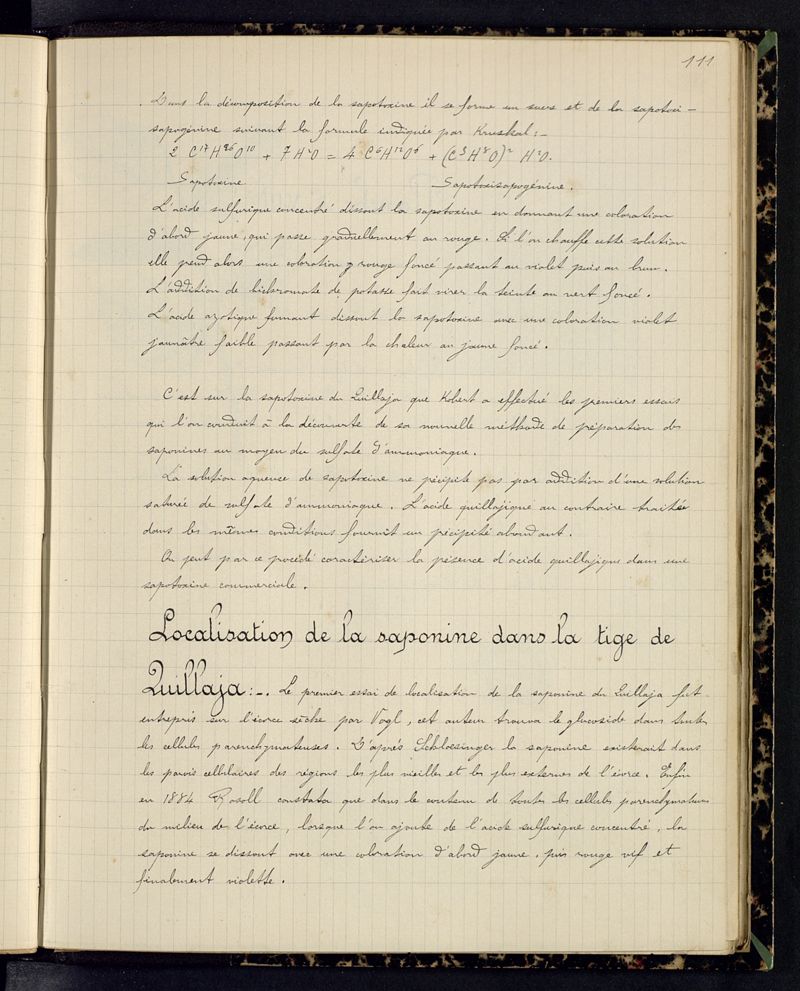 111
Dans la décomposition de la sapotoxine il se forme un sucre et de la sapotoxi-
sapogénine suivant la formule indiquée par Kruskal:-
2 C¹⁷H²⁶O¹⁰ + 7 H²O = 4 C⁶H¹²O⁶ + (C⁵H⁸O)² H²O.
Sapotoxine Sapotoxisapogénine.
L'acide sulfurique concentré dissout la sapotoxine en donnant une coloration
d'abord jaune, qui passe graduellement au rouge. Si l'on chauffe cette solution
elle prend alors une coloration rouge foncé passant au violet puis au brun.
L'addition de bichromate de potasse fait virer la teinte au vert foncé.
L'acide azotique fumant dissout la sapotoxine avec une coloration violet
jaunâtre faible passant par la chaleur au jaune foncé.
C'est sur la sapotoxine du Quillaja que Kobert a effectué les premiers essais
qui l'on conduit à la découverte de sa nouvelle méthode de préparation des
saponines au moyen du sulfate d'ammoniaque.
La solution aqueuse de sapotoxine ne précipite pas par addition d'une solution
saturée de sulfate d'ammoniaque. L'acide quillajique au contraire traitée
dans les mêmes conditions fournit un précipité abondant.
On peut par ce procédé caractériser la présence d'acide quillajique dans une
sapotoxine commerciale.
Localisation de la saponine dans la tige de
Quillaja:-. Le premier essai de localisation de la saponine du Quillaja fut
entrepris sur l'écorce sèche par Vogl, cet auteur trouva le glucoside dans toutes
les cellules parenchymateuses. D'après Schloesinger la saponine existerait dans
les parois cellulaires des régions les plus vieilles et les plus externes de l'écorce. Enfin
en 1884 Rosoll constata que dans le contenu de toutes les cellules parenchymateuses
du milieu de l'écorce, lorsque l'on ajoute de l'acide sulfurique concentré, la
saponine se dissout avec une coloration d'abord jaune, puis rouge vif et
finalement violette.